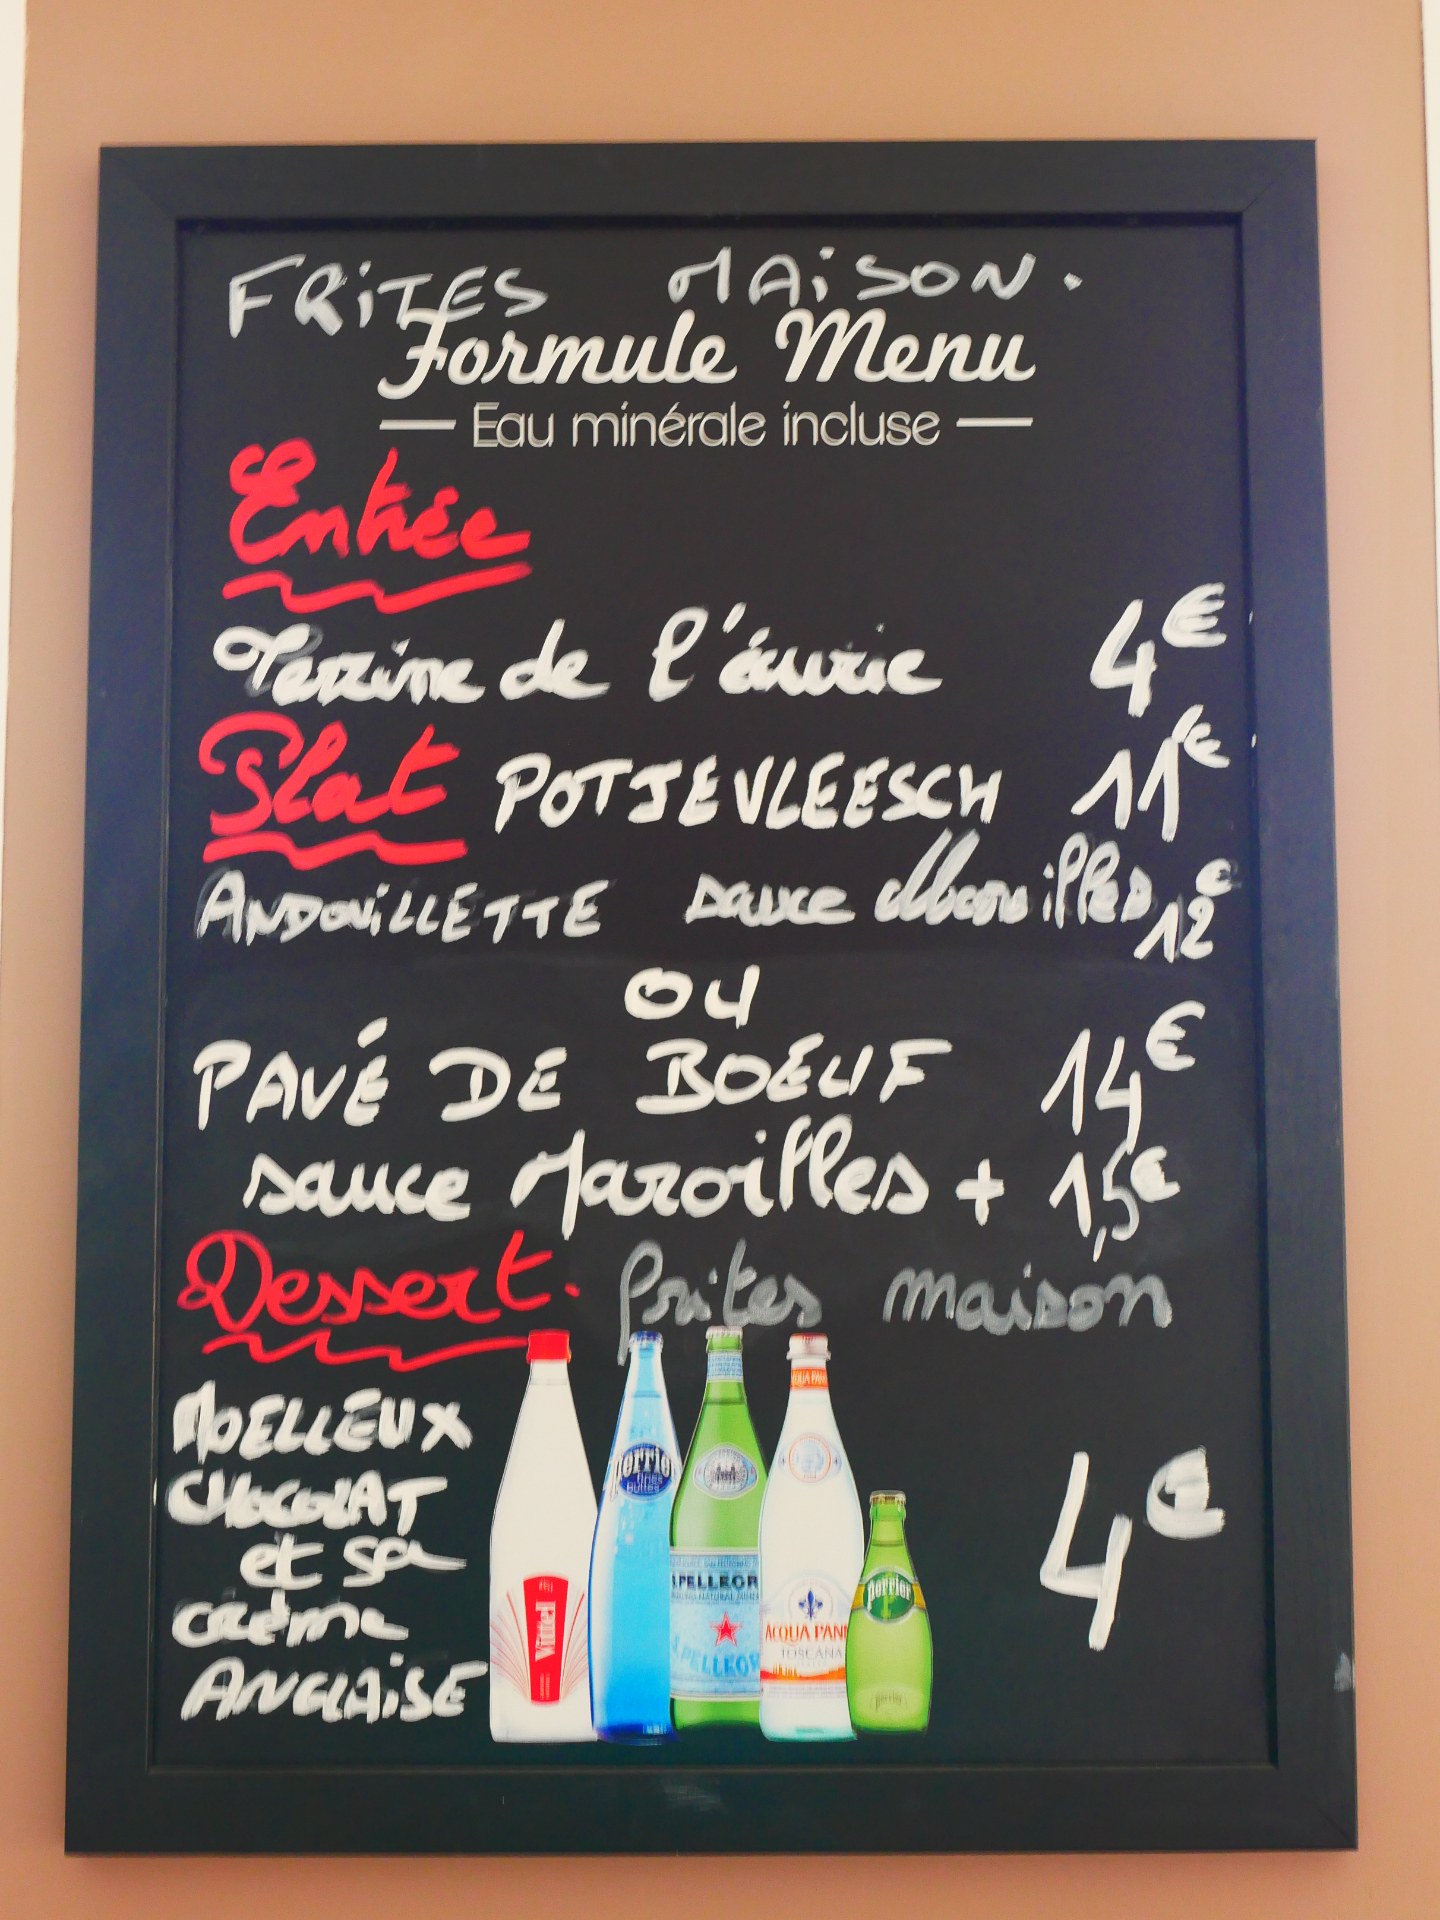 FRITES MAISON.
Formule Menu
Eau minérale incluse
Entrée
Terrine de l'écurie 4€
Plat POTJEVLEESCH 11€
ANDOUILLETTE sauce Maroilles 12€
OU
PAVÉ DE BOEUF 14€
sauce Maroilles + 1,5€
Dessert. frites maison
MOELLEUX
CHOCOLAT
et sa
crème
ANGLAISE
4€
perrier
fines
bulles
S.PELLEGR
S.PELLEGR
Vittel
ACQUA PANN
ACQUA PANN
TOSCANA
perrier
perrier